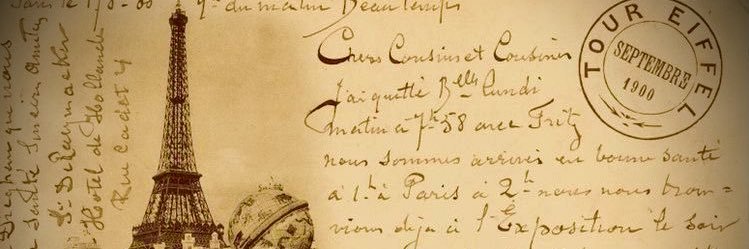 du matin Beau temps
Chers Cousins et Cousines
J'ai quitté Belle lundi
matin à 7h 58 avec Fritz
nous sommes arrivés en bonne santé
à 1h à Paris à 2h nous nous trou-
vions déjà à l'Exposition le soir
TOUR EIFFEL
SEPTEMBRE
1900
Hotel de Hollande
Rue Cadet 4